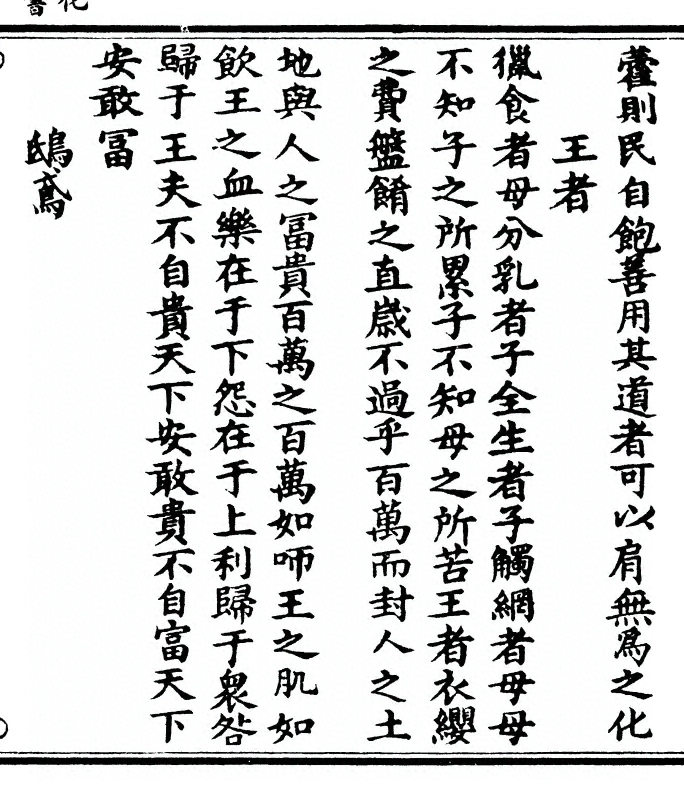 藿則民自飽善用其道者可以肩無爲之化
王者
獵食者母分乳者子全生者子觸網者母母
不知子之所累子不知母之所苦王者衣纓
之費盤餚之直歲不過乎百萬而封人之土
地與人之冨貴百萬之百萬如咂王之肌如
飲王之血樂在于下怨在于上利歸于衆咎
歸于王夫不自貴天下安敢貴不自富天下
安敢冨
鴟鳶